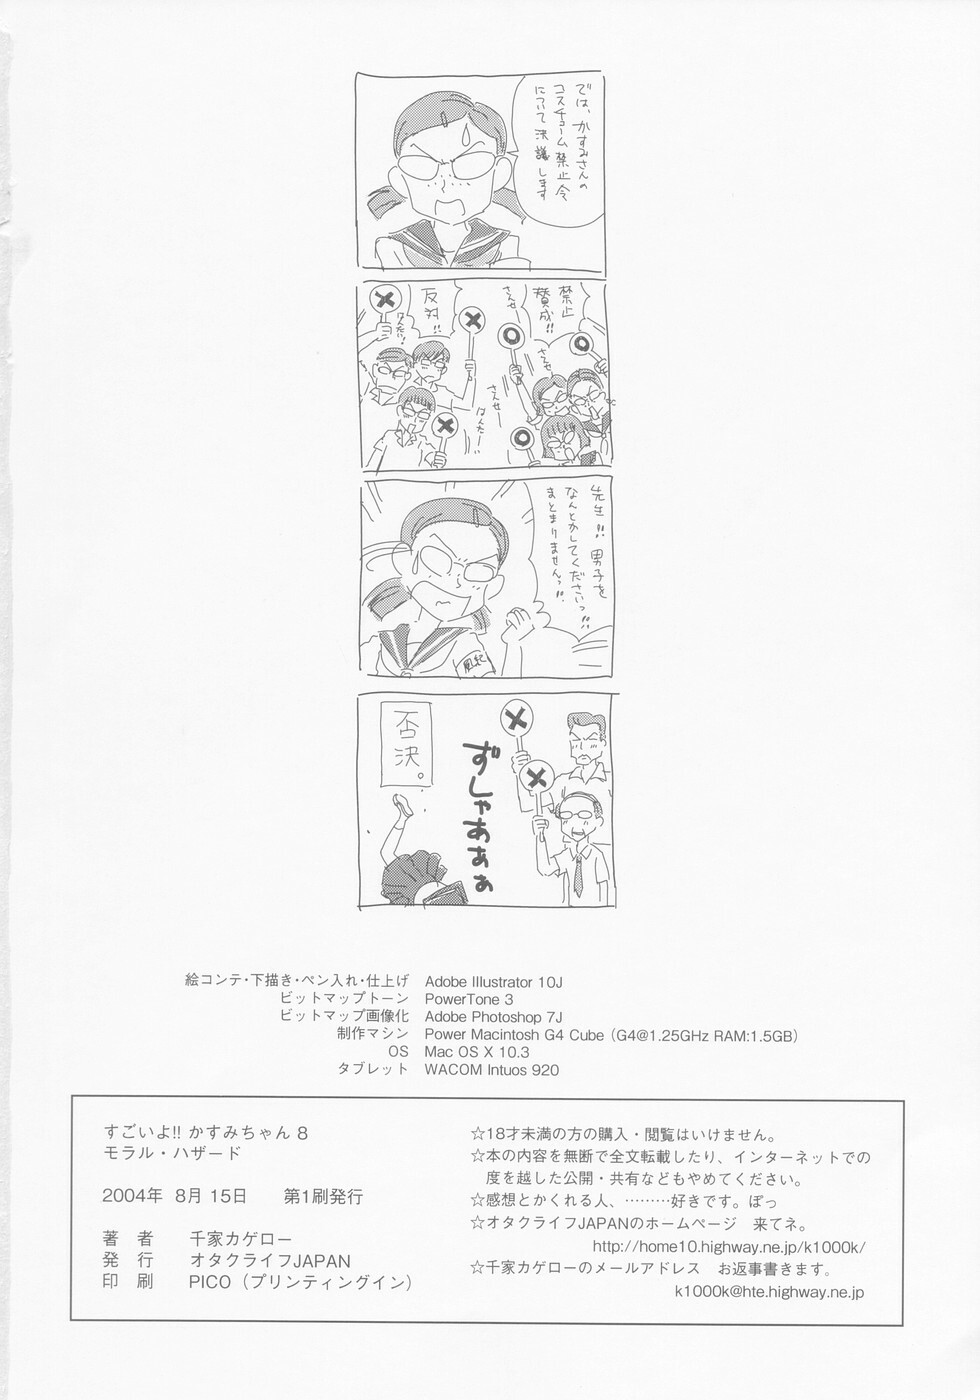 では、かすみさんの
コスチューム禁止令
について決議します
禁止
賛成!!
さんせ
さんせ
さんせー
はんたー!
反対!!
はんたい!
先生!! 男子を
なんとかしてくださいっ!!
まとまりませんっ!!
風紀
否決。
ずしゃあぁぁ
絵コンテ・下描き・ペン入れ・仕上げ Adobe Illustrator 10J
ビットマップトーン PowerTone 3
ビットマップ画像化 Adobe Photoshop 7J
制作マシン Power Macintosh G4 Cube（G4@1.25GHz RAM:1.5GB）
OS Mac OS X 10.3
タブレット WACOM Intuos 920
すごいよ!! かすみちゃん 8
モラル・ハザード
2004年 8月 15日 第1刷発行
著 者 千家カゲロー
発 行 オタクライフJAPAN
印 刷 PICO（プリンティングイン）
☆18才未満の方の購入・閲覧はいけません。
☆本の内容を無断で全文転載したり、インターネットでの
度を越した公開・共有などもやめてください。
☆感想とかくれる人、………好きです。ぽっ
☆オタクライフJAPANのホームページ 来てネ。
http://home10.highway.ne.jp/k1000k/
☆千家カゲローのメールアドレス お返事書きます。
k1000k@hte.highway.ne.jp